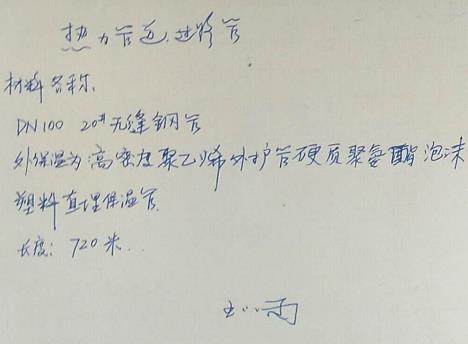 热力管道过路管
材料名称.
DN100 20#无缝钢管
外保温为高密度聚乙烯外护管硬质聚氨酯泡沫
塑料直埋保温管
长度: 720米..